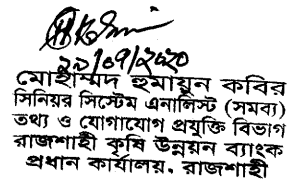 ২৯/০৭/২০২০
মোহাম্মদ হুমায়ুন কবির
সিনিয়র সিস্টেম এনালিস্ট (সমন্বয়)
তথ্য ও যোগাযোগ প্রযুক্তি বিভাগ
রাজশাহী কৃষি উন্নয়ন ব্যাংক
প্রধান কার্যালয়, রাজশাহী